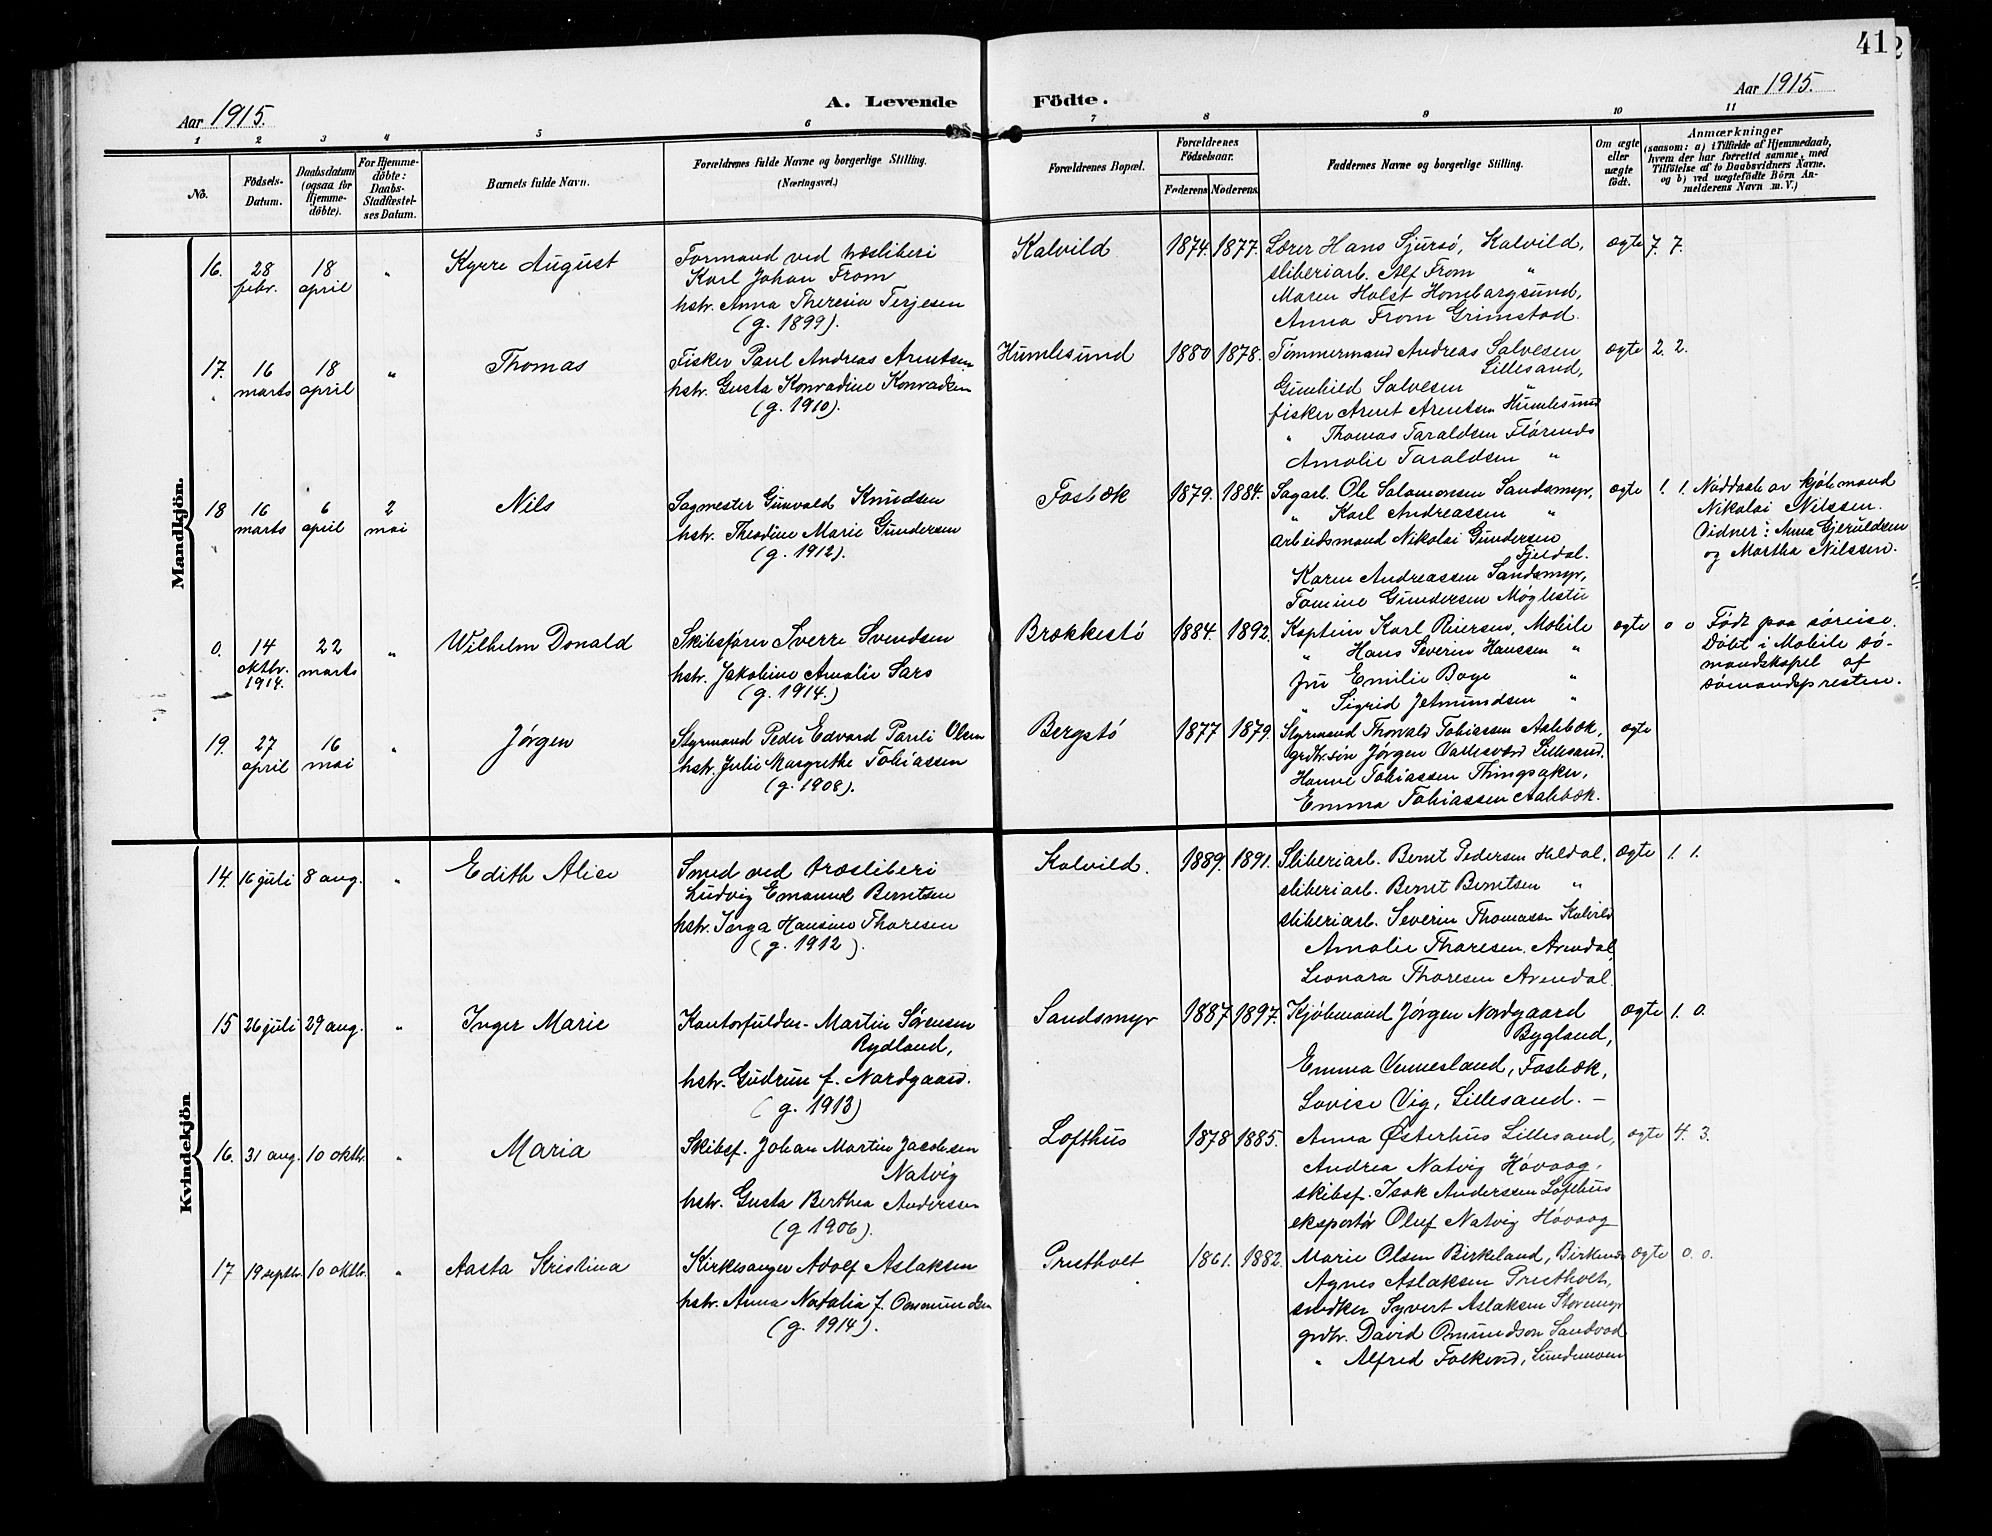 41
Aar 1915.
A. Levende Födte.
Aar 1915.
1 2 3 4 5 6 7 8 9 10 11
No.
Födsels-Datum.
Daabsdatum (ogsaa for Hjemme-döbte).
For Hjemme-döbte: Daabs-Stadfæstel-ses Datum.
Barnets fulde Navn.
Forældrenes fulde Navne og borgerlige Stilling.
(Næringsvei.)
Forældrenes Bopæl.
Forældrenes Födselsaar.
Faderens Moderens
Faddernes Navne og borgerlige Stilling.
Om ægte eller uægte födt.
Anmærkninger
(saasom: a) i Tilfælde af Hjemmedaab,
hvem der har forrettet samme, med
Tilföielse af to Daabsvidners Navne.
og b) ved uægtefödte Börn An-
melderens Navn m. V.)
Mandkjön.
16. 28 febr. 18 april " Kyrre August
Formand ved træsliberi
Karl Johan From
hstr. Anna Theresia Terjesen
(g. 1899).
Kalvild 1874. 1877.
Lærer Hans Sjursö, Kalvild,
sliberiarb. Alf From "
Maren Holst Hombargsund,
Anna From Grimstad.
ægte 7. 7.
17. 16 marts 18 april " Thomas
Fisker Paul Andreas Arentsen
hstr. Gusta Konradine Konradsen
(g. 1910).
Humlesund 1880 1878.
Tømmermand Andreas Salvesen
Lillesand,
Gunhild Salvesen "
fisker Arent Arentsen Humlesund
" Thomas Taraldsen
Amalie Taraldsen "
ægte 2. 2.
18 16 marts 6 april 2 mai Nils
Sagmester Gunvald Knudsen
hstr. Theodine Marie Gundersen
(g. 1912).
Fosbæk 1879. 1884.
Sagarb. Ole Salomonsen Sandsmyr,
" Karl Andreassen "
arbeidsmand Nikolai Gundersen
Fjeldal.
Karen Andreassen Sandsmyr,
Tomine Gundersen Møglestu
ægte 1. 1.
Nøddaab av kjøbmand
Nikolai Nilssen.
Vidner: Anna Gjeruldsen
og Martha Nilssen.
0. 14 oktbr. 1914. 22 marts " Wilhelm Donald
Skibsfører Sverre Svendsen
hstr. Jakobine Amalie Sars
(g. 1914.)
Brækkestö 1884. 1892.
Kaptein Karl Reiersen, Mobile
" Hans Severin Hanssen "
fru Emilie Boge "
" Sigrid Jetmundsen "
ægte 0 0
Født paa søreise.
Døbt i Mobile sø-
mandskapel af
sømandspresten.
19. 27 april 16 mai " Jørgen
Styrmand Peder Edvard Pauli Olsen
hstr. Julie Margrethe Tobiassen
(g. 1908).
Bergstö 1877 1879.
Styrmand Thorvald Tobiassen Aabbæk,
grdbr.søn Jørgen Lillesand.
Hanne Tobiassen Thingsaker,
Emma Tobiassen Aabbæk.
ægte
Kvindekjön
14. 16 juli 8 aug. " Edith Alise
Smed ved træsliberi
Ludvig Emanuel Berntsen
hstr. Inga Hansine Thoresen
(g. 1912).
Kalvild. 1889. 1891.
Sliberiarb. Bernt Pedersen Heldal,
sliberiarb. Bernt Berntsen "
sliberiarb. Severin Thomassen Kalvild
Amalie Thoresen. Arendal
Leonora Thoresen Arendal.
ægte 1. 1.
15 26 juli 29 aug. " Inger Marie
Kontorfuldm. Martin Sørensen
Rydland,
hstr. Gudrun f. Nordgaard.
(g. 1913)
Sandsmyr 1887 1897.
Kjøbmand Jørgen Nordgaard
Bygland,
Emma Vennesland, Fosbæk,
Lovise Vig, Lillesand. –
ægte 1. 0.
16. 31 aug. 10 oktbr. " Maria
Skibsf. Johan Martin Jacobsen
Natvig
hstr. Gusta Berthea Anderssen
(g 1906).
Lofthus 1878 1885.
Anna Østerhus Lillesand,
Andrea Natvig Høvaag,
skibsf. Isak Anderssen Lofthus
eksportør Oluf Natvig Høvaag
ægte 4. 3.
17 19 septbr. 10 oktbr. " Aasta Kristina
Kirkesanger Adolf Aslaksen
hstr. Anna Natalia f. Ommundsen
(g. 1914).
Prestholt 1861. 1882.
Marie Olsen Birkeland, Birkenes
Agnes Aslaksen Prestholt,
snedker Syvert Aslaksen Storemyr
grdbr. David Omundson Sandvad
" Alfred
ægte 0. 0.